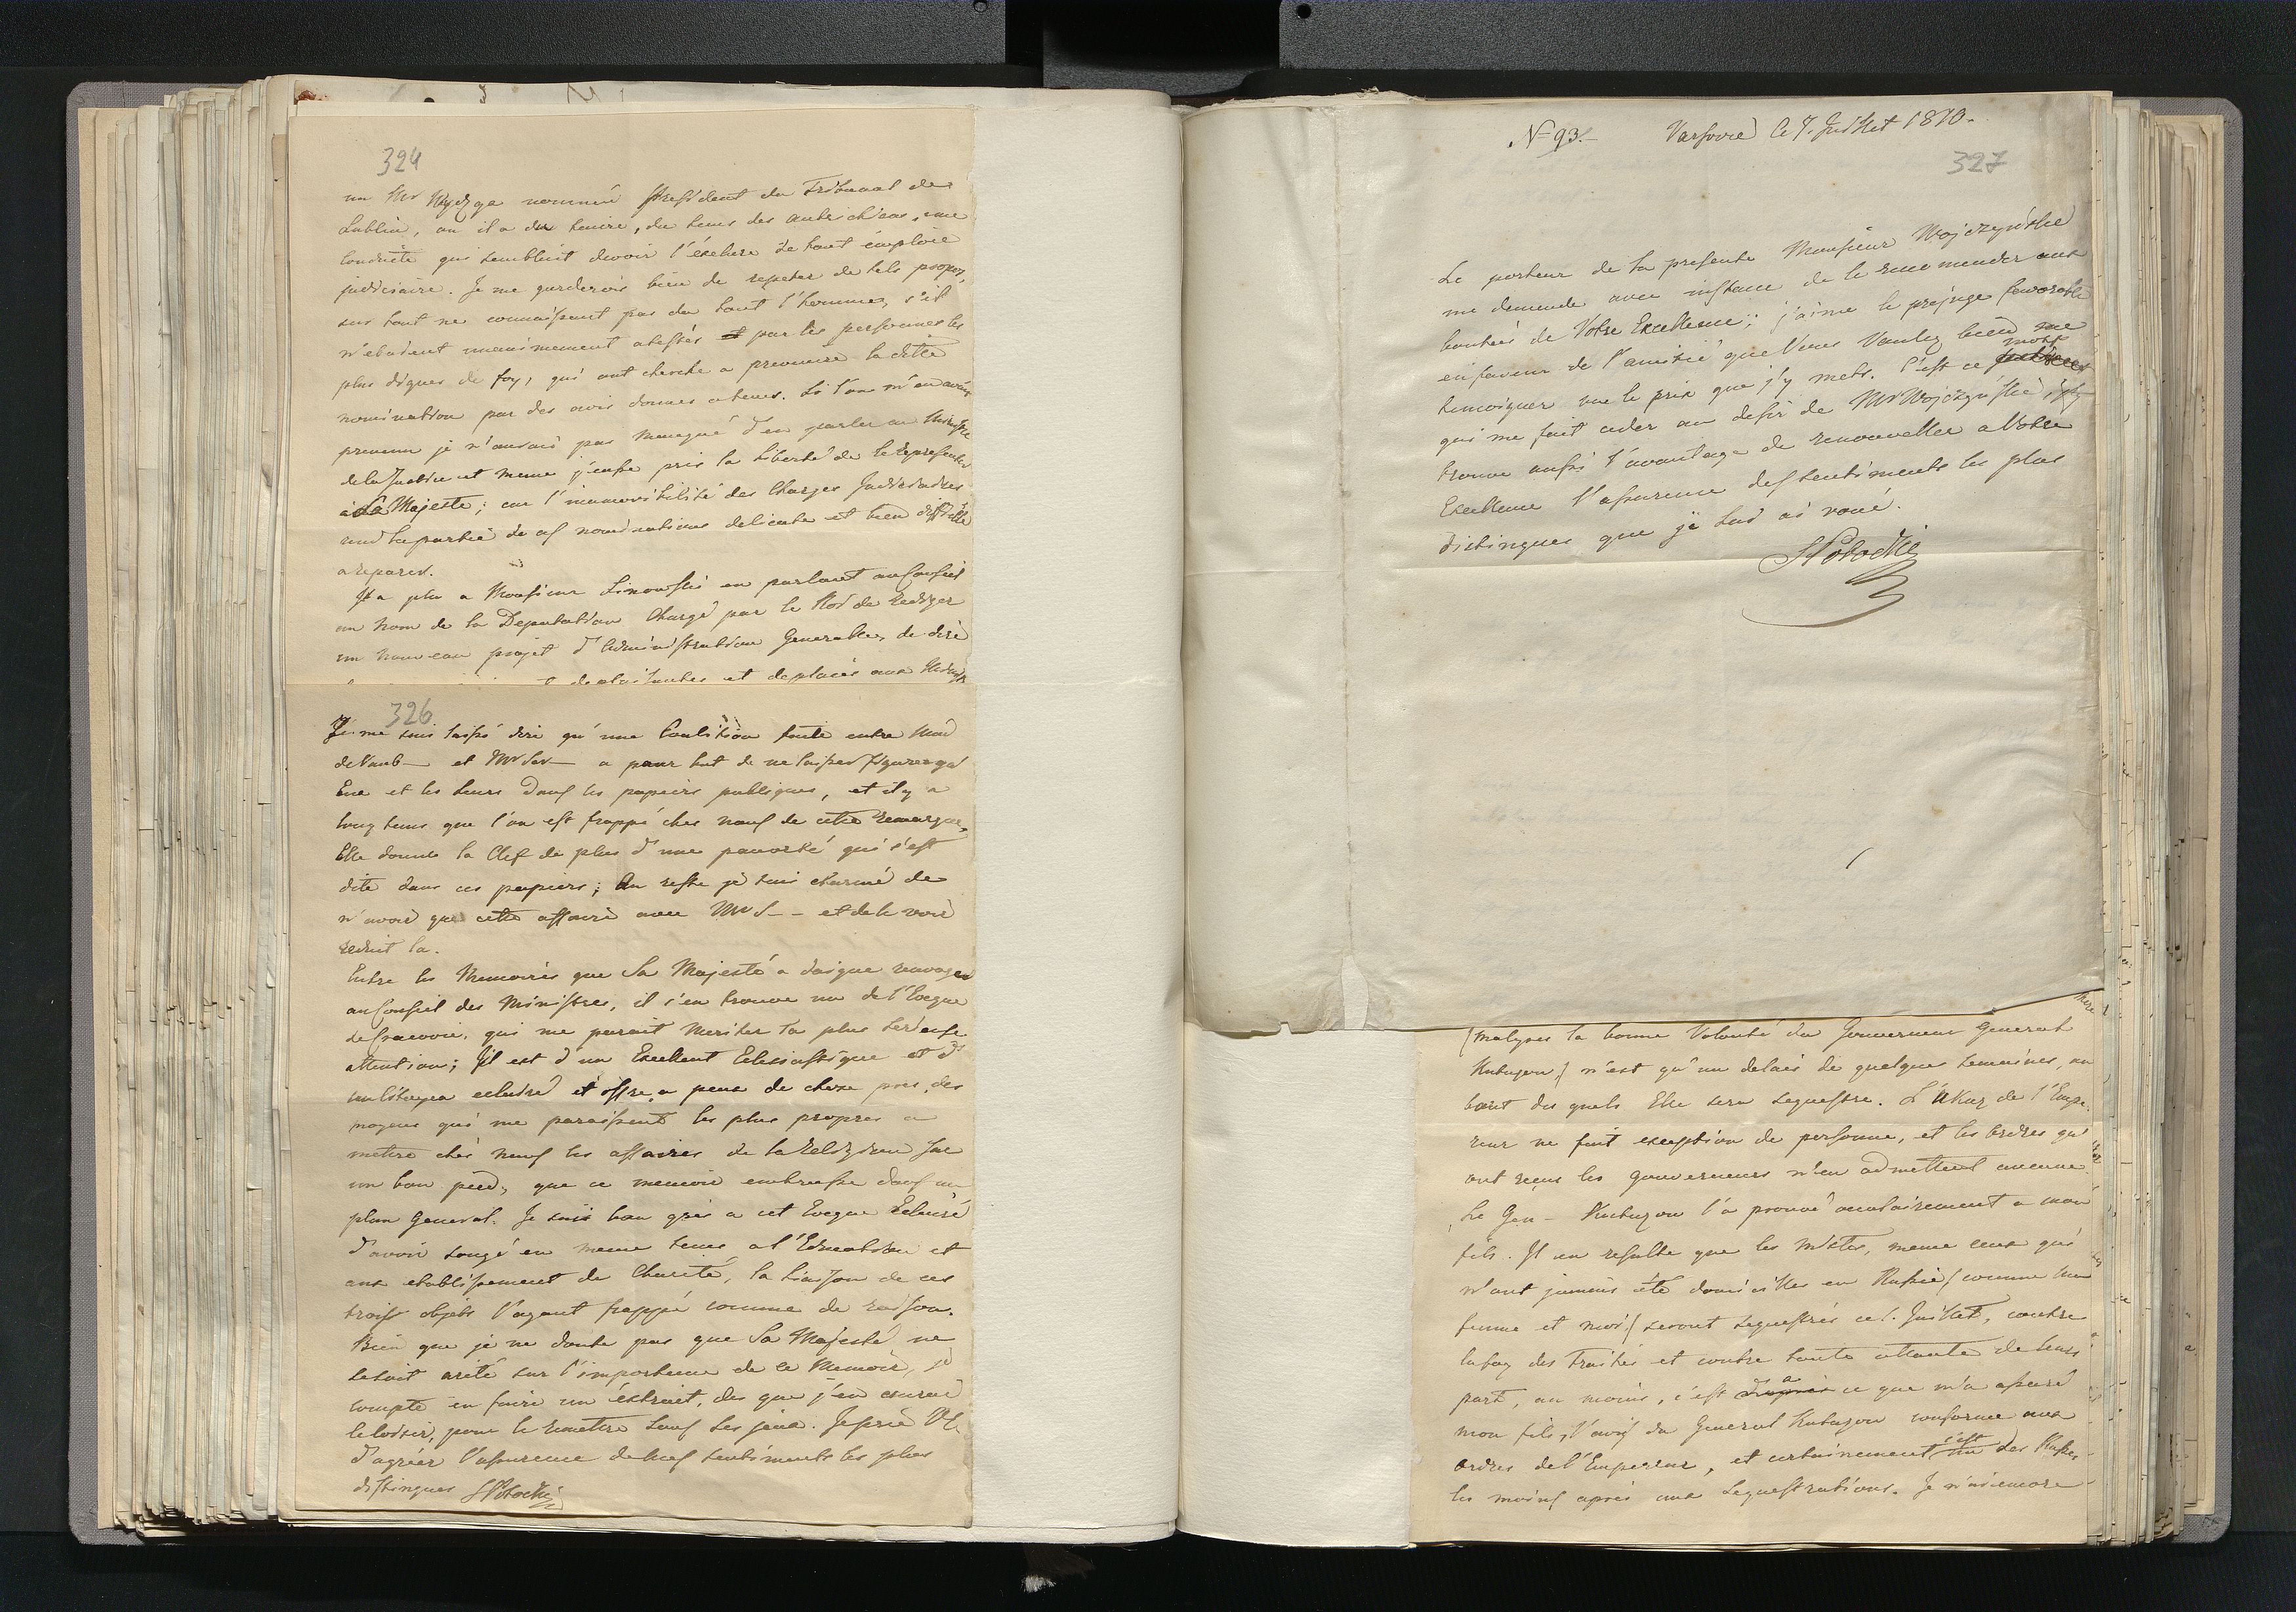 324
un Mr Wydzga nommé President du Tribunal de
Lublin, ou il a du tenire, du tems des autrichiens, une
conduite qui sembloit devoir l'exclure de tout emploie
judiciaire. Je me garderois bien de repeter de tels propos,
sur tout ne connaissant pas du tout l'homme, s'il
n'etoient unanimement atestés par les personnes les
plus dignes de foy, qui ont cherche a prevenire la dite
nomination par des avis donnes a tems. Si l'on m'en avoit
prevenu je n'aurois pas manqué d'en parler au Ministre
de la Justice et meme j'eusse pris la liberté de le representer
à Sa Majeste; car l'inamovibilité des Charges Judiciaires
rend la partie de ces nominations delicate et bien difficile
a reparer.
Il a plu a Monsieur Linowski en parlant au Conseil
au nom de la Deputation Chargé par le Roi de rediger
un nouveau projet d'Administration Generalle, de dire
deplaisantes et deplacés aux
326
Je me suis laissé dire qu'une Coalition faite entre Mad
de Vaub— et Mr Ser— a pour but de ne laisser figurer qu'
Eux et les leurs dans les papiers publiques, et il y a
long tems que l'on est frappé ches nous de cette remarque.
Elle donne la Clef de plus d'une pauvreté qui s'est
dite dans ces papiers; Au reste je suis charmé de
n'avoir que cette affaire avec Mr S— et de le voir
reduit la.
Entre les Memoires que Sa Majesté a daigne renvoyer
au Conseil des Ministres, il s'en trouve un de l'Eveque
de Cracovie, qui me parait meriter la plus serieuse
attention; Il est d'un Excellent Eclesiastique et d'
un Citoyen eclairé et offre a peux de chose près, des
moyens qui me paraissent les plus propres a
mettre ches nous les affaires de la Religion sur
un bon pied, que ce memoire embrasse dans un
plan General. Je sais bon gré a cet Eveque Eclairé
d'avoir songé en meme tems a l'Education et
aux etablissement de Charité, la liaison de ces
trois objets l'ayant frappé comme de raison.
Bien que je ne doute pas que Sa Majesté ne
se soit arété sur l'importance de ce Memoire, je
compte en faire un éxtrait, des que j'en aurai
le loisir, pour le remettre sous ses jeux. Je prie VE
d'agréer l'assurence de mes sentiments les plus
distingues SPotocki
N= 93.— Varsovie Ce 7. Juillet 1810.
327
Le porteur de la presente Monsieur Wojczynskie
me demande avec instance de le recommender aux
bontées de Votre Excellence; j'aime le prejuge favorable
en faveur de l'amitié que Vous Voulez bien me
temoigner vue le prix que j'y mets. C'est ce motif
qui me fait ceder au desir de Mr Wojczynskie, j'y
trouve aussi l'avantage de renouveller a Votre
Excellence l'assurence des sentiments les plus
distingues que je lui ai voué.
SPotocki
(malgres la bonne Volonté du Gouverneur General
Kutuzow) n'est qu'un delais de quelques semaines, au
bout des quels Elle sera sequestre. L'Ukaz de l'Empe-
reur ne fait exception de personne, et les ordres qu'
ont reçus les gouverneurs n'en admettent aucune.
Le Gen— Kutuzow l'a prouvé oculairement a mon
fils. Il en resulte que les Mixtes, meme ceux qui
n'ont jamais été domiciliés en Russie (comme ma
femme et moi) seront sequestrés ce 1. Juillet, contre
la foy des Traités et contre toute attente de leurs
part, au moins, c'est a ce que m'a assuré
mon fils, l'avis du General Kutuzow conforme aux
ordres de l'Empereur, et certainement c'est des Russes
les moins apres aux sequestrations. Je n'ai encore